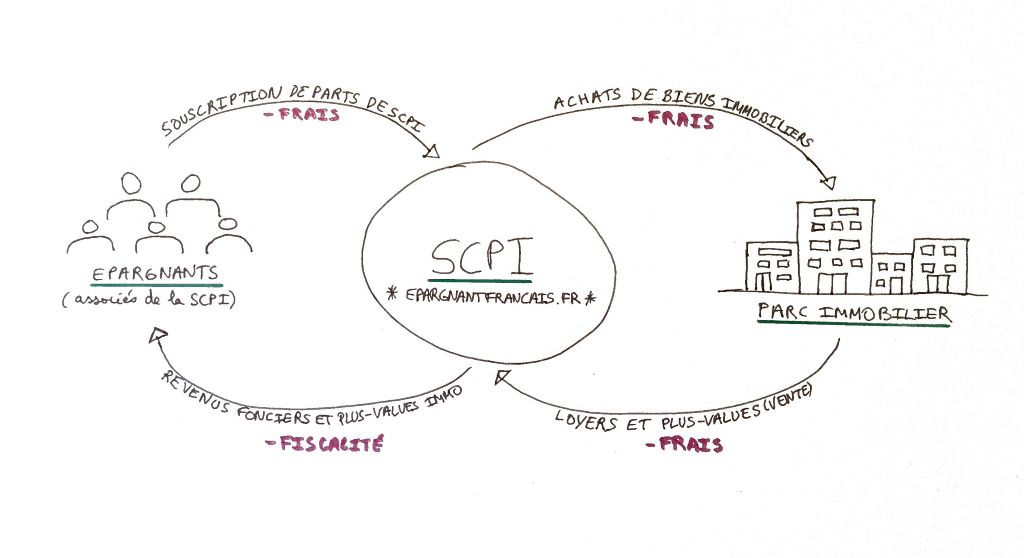 SOUSCRIPTION DE PARTS DE SCPI
- FRAIS
ACHATS DE BIENS IMMOBILIERS
- FRAIS
EPARGNANTS
(associés de la SCPI)
SCPI
* EPARGNANTFRANCAIS.FR *
PARC IMMOBILIER
REVENUS FONCIERS ET PLUS-VALUES IMMO
- FISCALITÉ
LOYERS ET PLUS-VALUES (VENTE)
- FRAIS